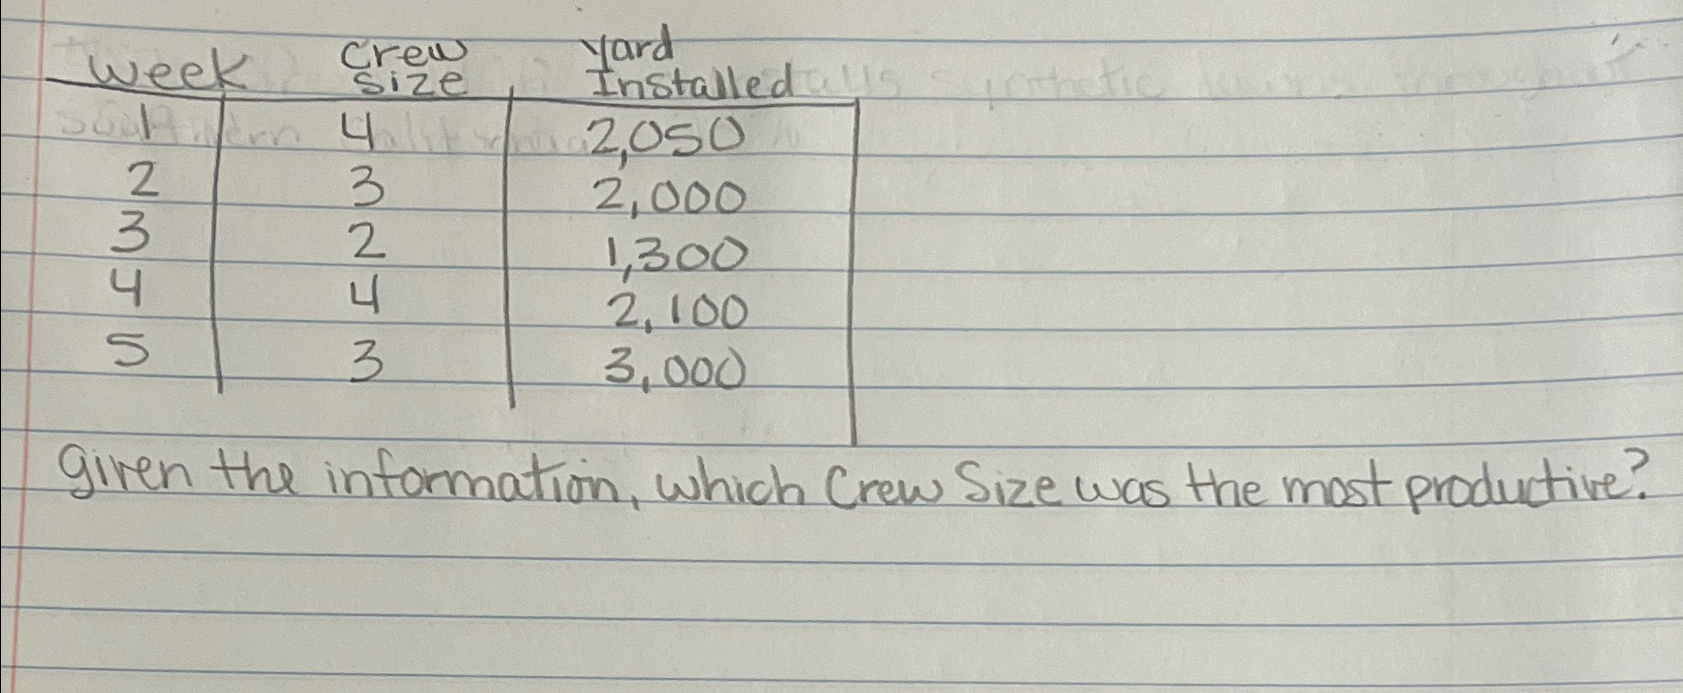 Week Crew Size Yard Installed
1 4 2,050
2 3 2,000
3 2 1,300
4 4 2,100
5 3 3,000
given the information, which Crew Size was the most productive?